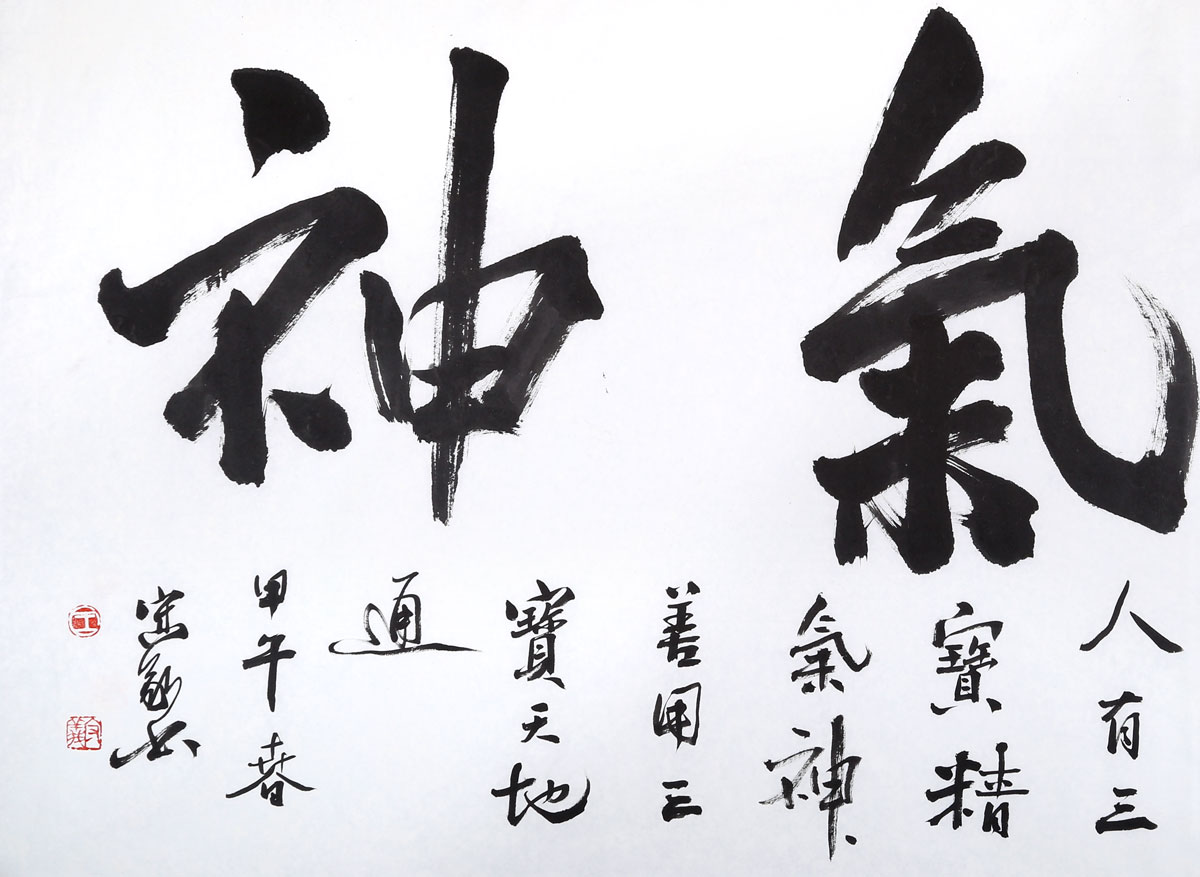 氣
神
人有三
寶精
氣神
善用三
寶天地
通
甲午春
书
王